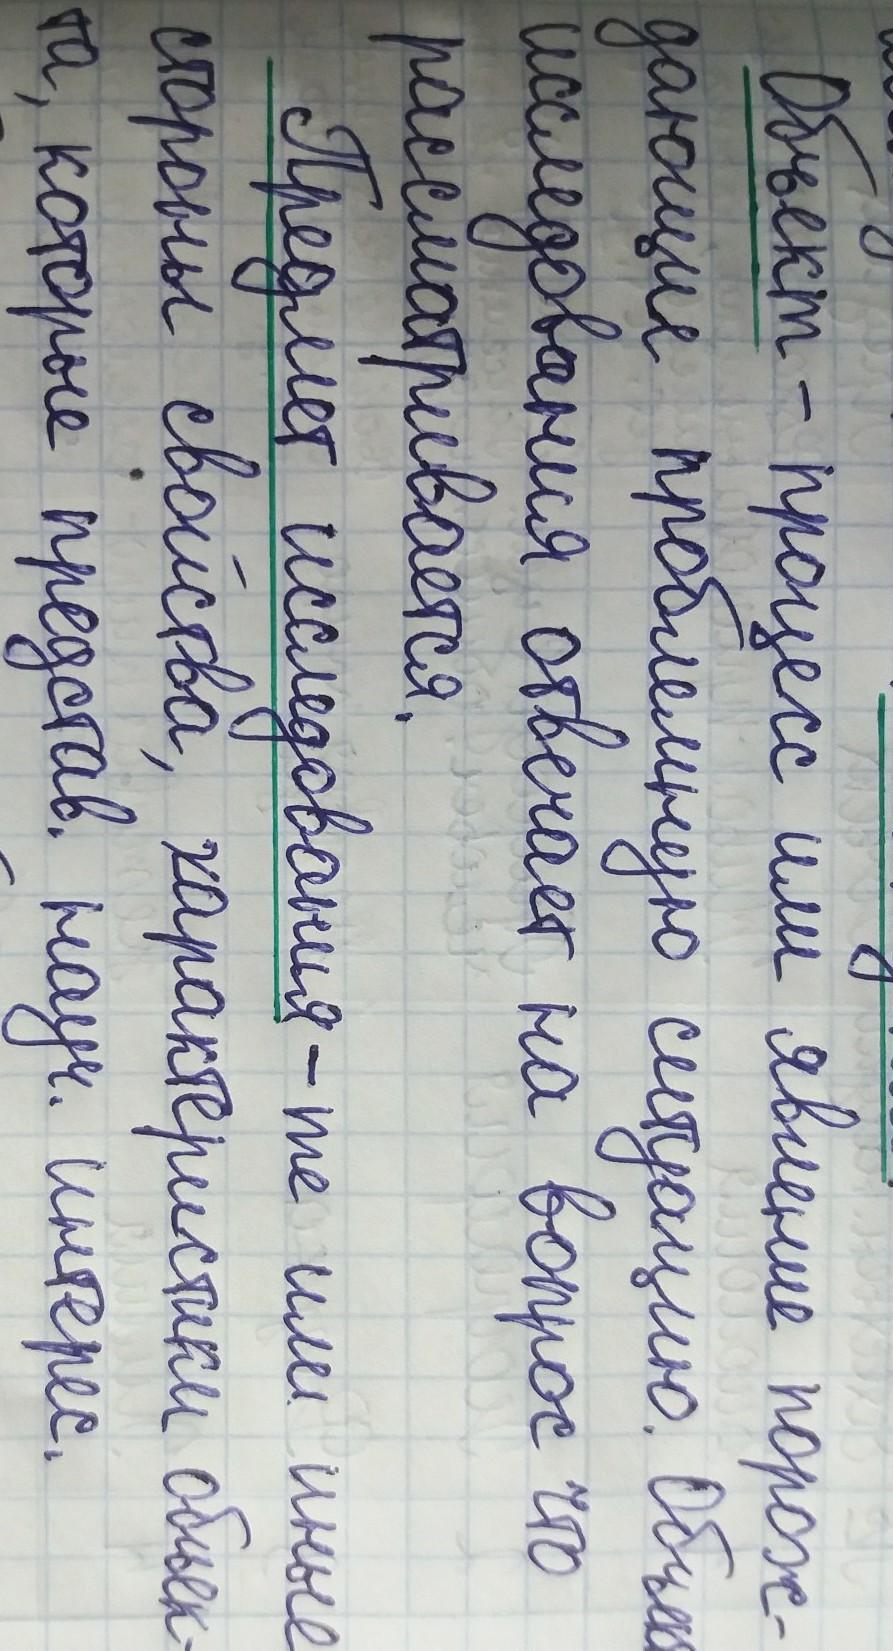 Объект - процесс или явление порож-
дающие проблемную ситуацию. Объек
исследования отвечает на вопрос что
рассматривается.
Предмет исследования - те или иные
стороны свойства, характеристики объек-
та, которые представ. науч. интерес.